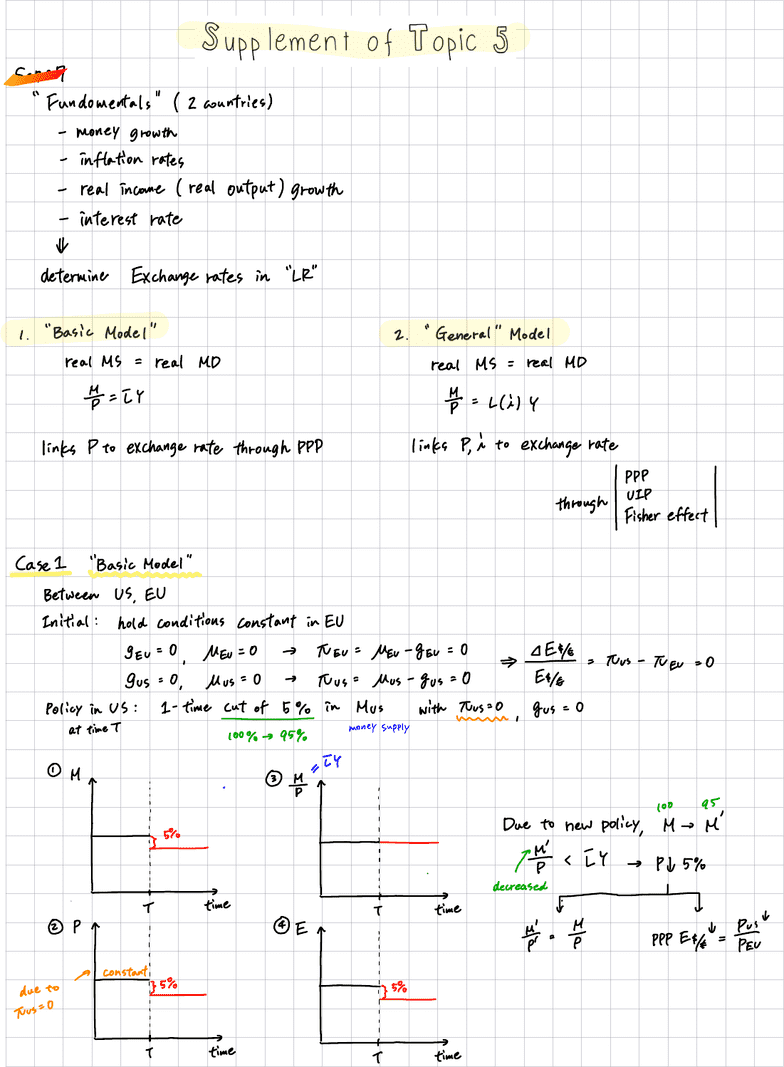 Supplement of Topic 5
"Fundamentals" (2 countries)
- money growth
- inflation rates
- real income (real output) growth
- interest rate
⇓
determine Exchange rates in "LR"
1. "Basic Model"
real MS = real MD
M/P = L̄Y
links P to exchange rate through PPP
2. "General" Model
real MS = real MD
M/P = L(i) Y
links P, i to exchange rate
through | PPP
UIP
Fisher effect |
Case 1 "Basic Model"
Between US, EU
Initial: hold conditions constant in EU
gEU = 0, μEU = 0 → πEU = μEU - gEU = 0
gUS = 0, μUS = 0 → πUS = μUS - gUS = 0
⇒ ΔE$/€ / E$/€ = πUS - πEU = 0
Policy in US: 1-time cut of 5% in MUS with πUS = 0, gUS = 0
at time T
100% → 95%
money supply
① M
5%
T time
② P
constant
5%
due to
πUS = 0
T time
③ M/P = L̄Y
T time
④ E
5%
T time
100 95
Due to new policy, M → M'
M'/P < L̄Y → P↓ 5%
decreased
M'/P' = M/P
PPP E$/€↓ = PUS↓/PEU